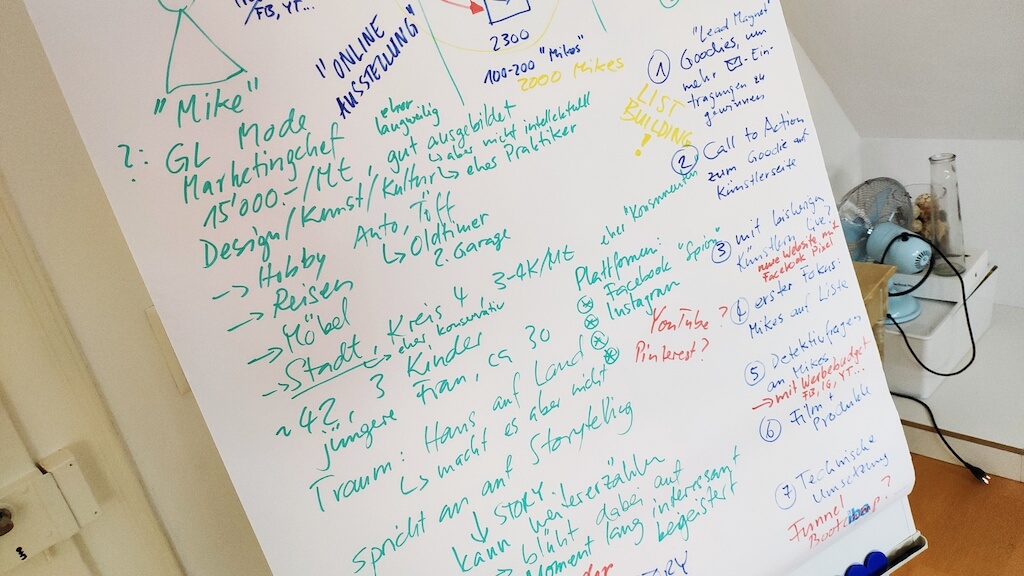 FB, YT...
"Mike"
"ONLINE
AUSSTELLUNG"
2300
100-200 "Mikes"
2000 Mikes
LIST
BUILDING
!
?: GL Mode
Marketingchef
eher
langweilig
15'000.-/Mt, gut ausgebildet
↳ aber nicht intellektuell
Design/Kunst/Kultur ↳ eher Praktiker
→ Hobby Auto, Töff
↳ Oldtimer
2. Garage
→ Reisen
→ Möbel
→ Stadt, Kreis 4 3-4K/Mt
↳ eher konservativ
~ 42, 3 Kinder
jüngere Frau, ca 30
Traum: Haus auf Land
↳ macht es aber nicht
spricht an auf Storytelling
↓ STORY
kann weitererzählen
→ blüht dabei auf
→ Moment lang interessant
begeistert
eher "Konsument"
Plattformen:
Facebook "Spion"
Instagram
YouTube?
Pinterest?
"Lead Magnet"
① Goodies, um
mehr ✉-Ein-
tragungen zu
gewinnen
② Call to Action
zum Goodie auf
Künstlerseite
③ mit bisherigen
Künstlern
neue Website mit
Facebook Pixel
④ erster Fokus:
Mikes auf Liste
⑤ Detektivfragen
an Mikes
→ mit Werbebudget
FB, IG, YT...
⑥ Film +
Produkte
⑦ Technische
Umsetzung
Funnel
Bootcamp?